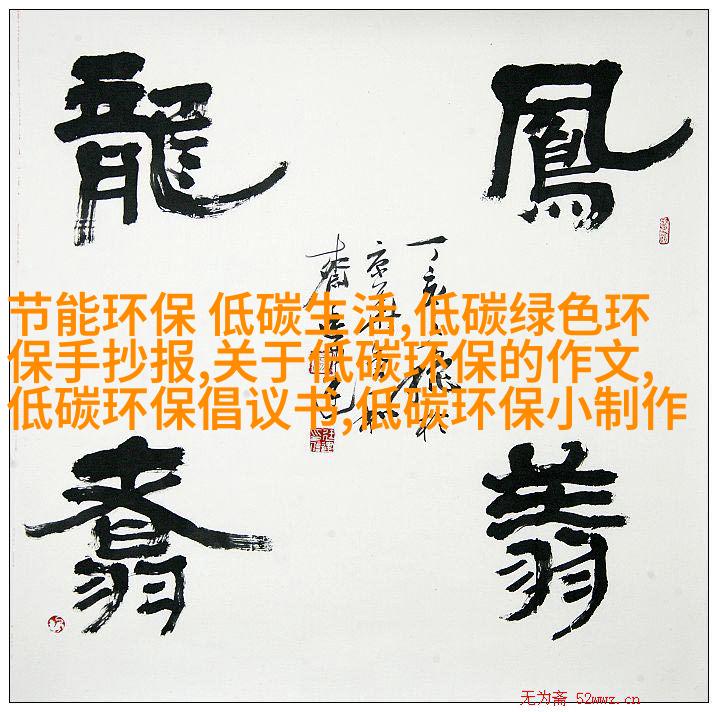 龍 鳳
丁亥
节能环保 低碳生活,低碳绿色环
保手抄报,关于低碳环保的作文,
低碳环保倡议书,低碳环保小制作
翥 翔
无为斋 52wwz.cn